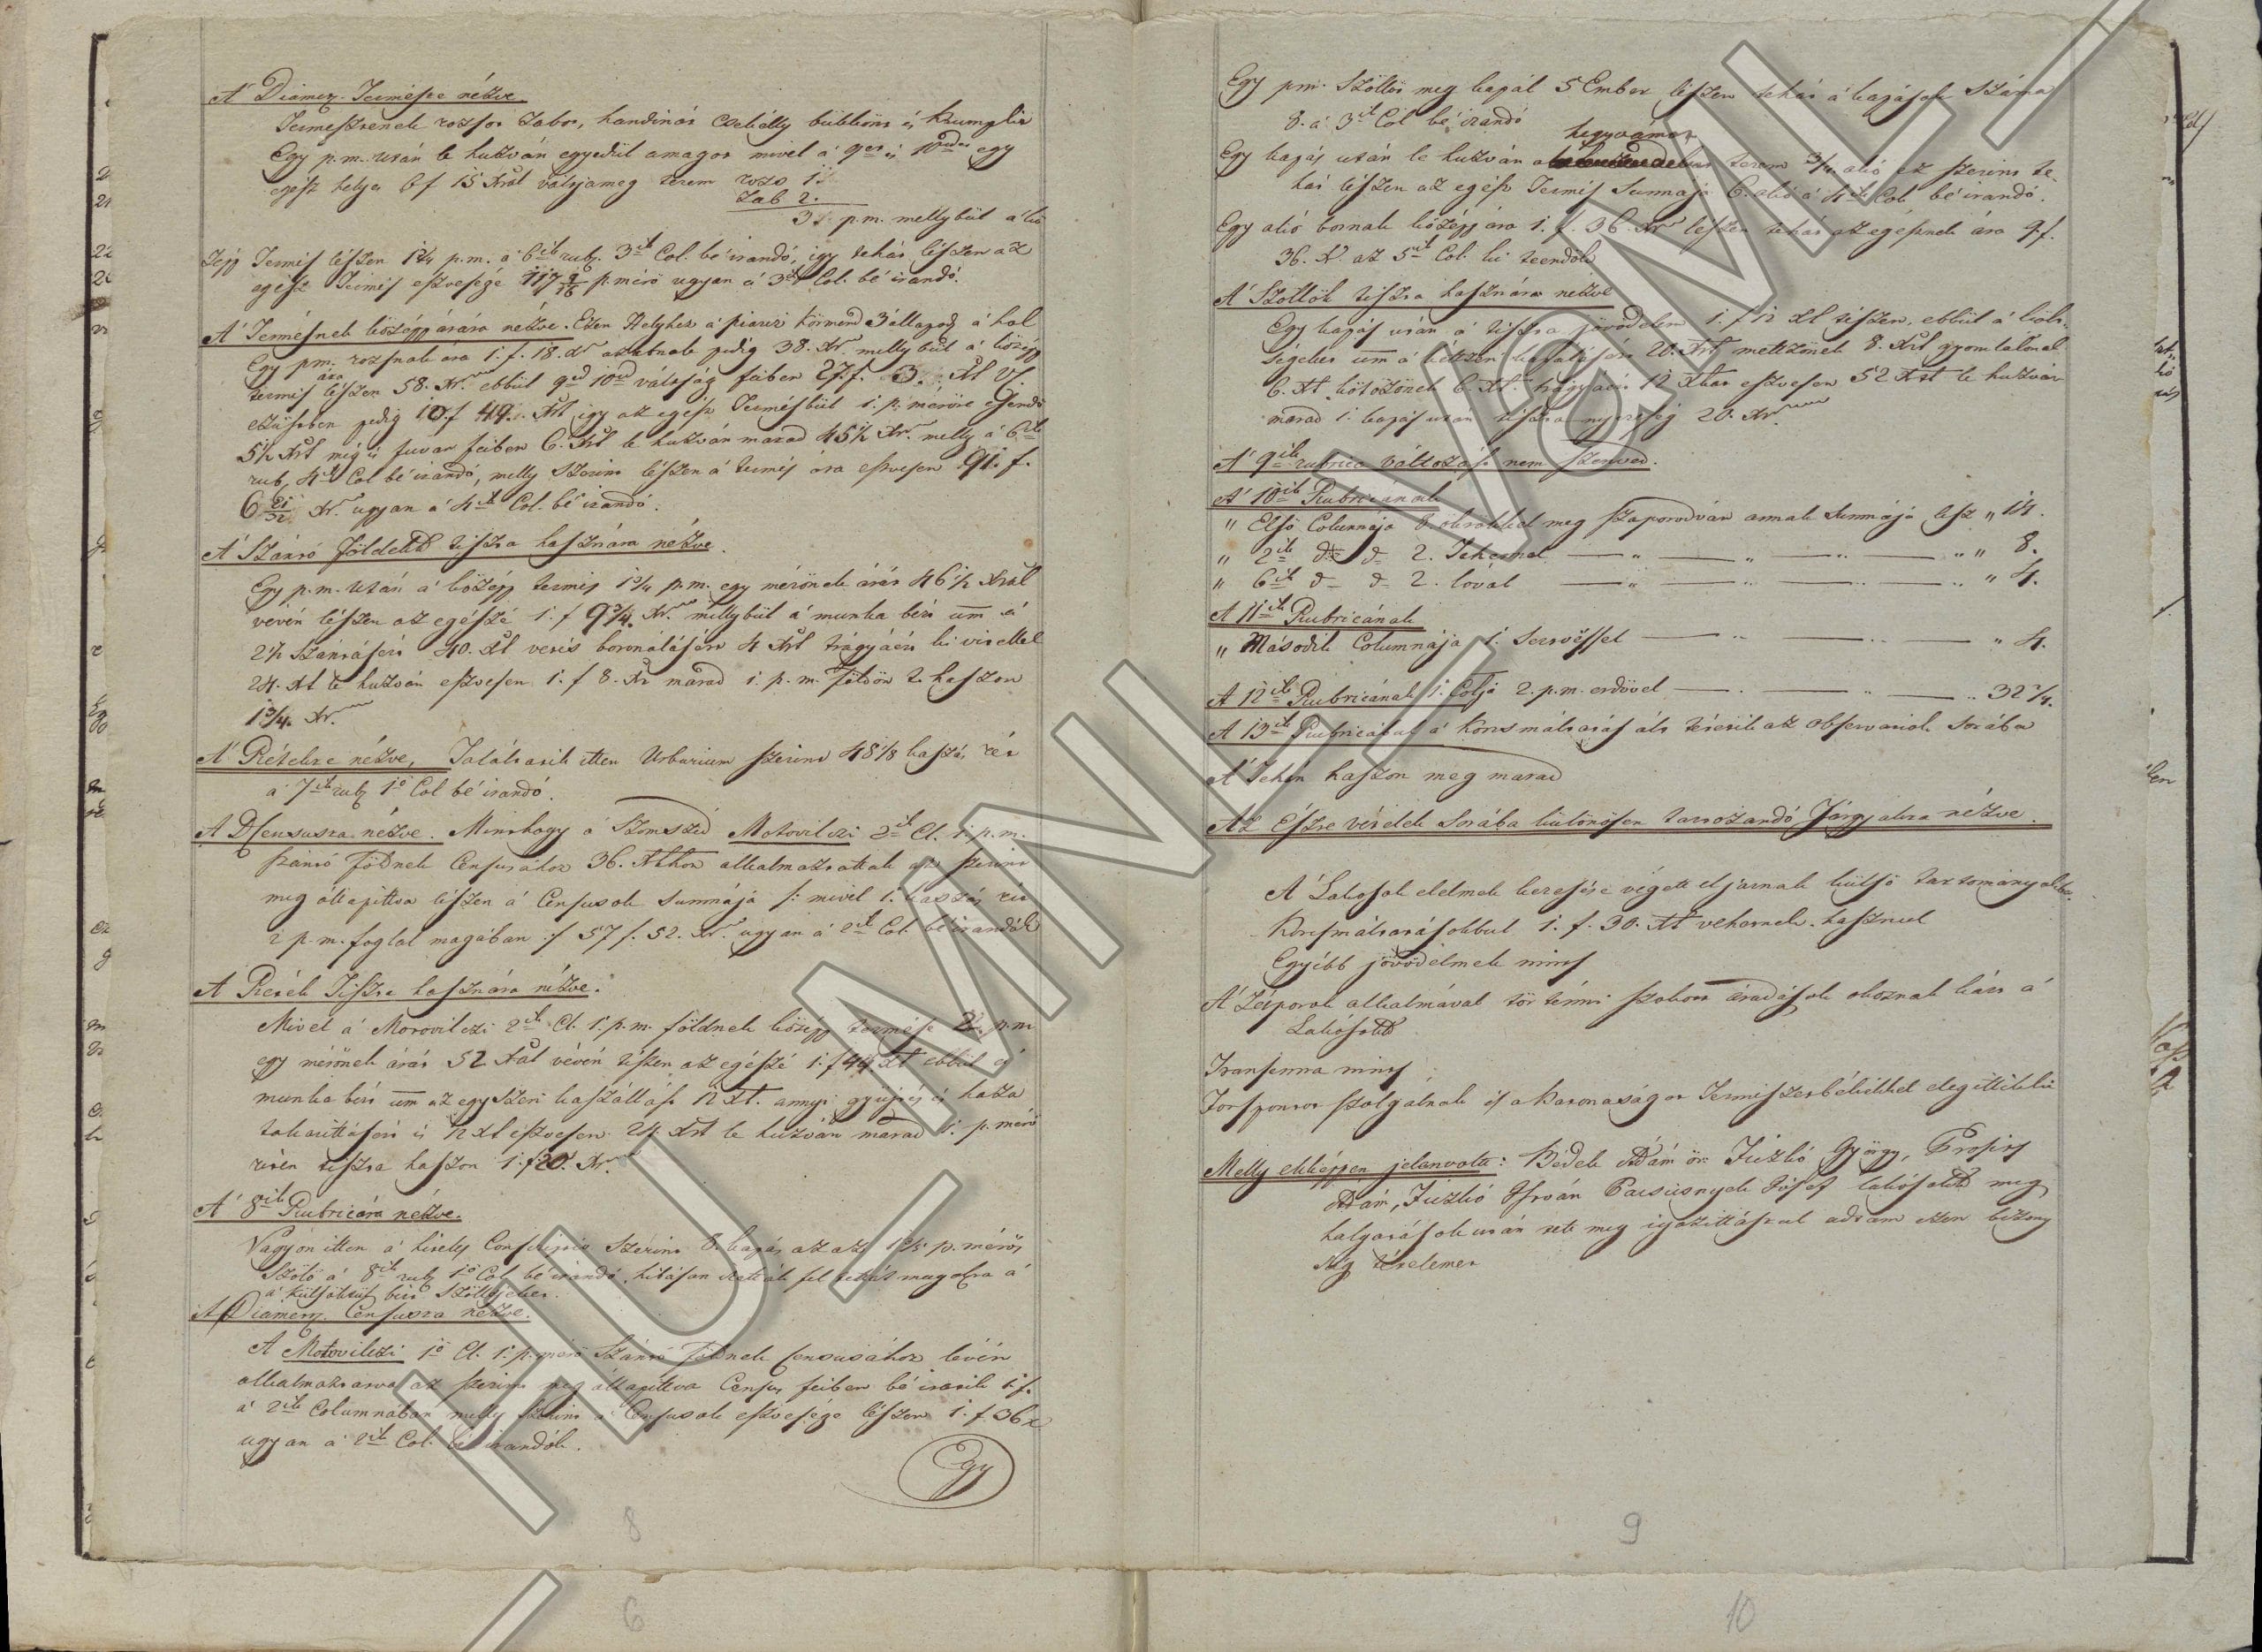 A' Diamez. Termésre nézve
Termesztenek rozsot Zabot, handinát csekélly bükkönt és Krumplit
Egy p.m. után le huzván egyedül amagot mivel a' 9et és 10det egy
egész helyes 6f 15 Xral váltjameg terem rozs 1.
Zab 2.
3 p.m. mellybül a' kö
zép Termés lészen 1 2/4 p.m. a' 6ik rub. 3ik Col. bé irandó, igy tehát lészen az
egész Termés eszvesége 117 9/16 p.mérö ugyan a' 3ik Col. bé irandó.
A' Termésnek középp árára nézve. Ezen Helyhez a' piarcz Körmend 3 állapod a' hol
Egy pm. rozsnak ára 1. f. 18. Xr azabnak pedig 38. Xr. mellybül a' középp
termés ára lészen 58. Xr. ebbül 9ed 10ed váltság feiben 27.f. 3. Xt Vf.
ezüstben pedig 10.f 49. Xrt, igy az egész Termésbül 1. p. meröre esendö
5 1/2 Xrt még is fuvar feiben 6. Xrt le huzván marad 45 1/2 Xr. melly a' 6ik
rub, 4ik Col bé irandó, melly szerint lészen a' termés ára eszvesen 91. f.
6 21/32 Xr. ugyan a' 4ik Col. bé irandó.
A' Szántó földeknek tiszta hasznára nézve.
Egy p.m. után a' középp termés 1 2/4 p.m. egy mérönek árát 46 1/2 Xral
vévén lészen az egészé 1. f 9 3/4. Xr. mellybül a' munka bért um a'
2 1/2 szántásért 40. Xt vetés boronálásért 4 Xrt trágyáért ki vitellel
24. Xt le huzván eszvesen 1. f 8. Xr marad 1. p.m. földön t. haszon
1 3/4. Xr.
A' Rétekre nézve, Találtatik itten Urbarium szerint 48 1/8 kaszás rét
a' 7ik rub. 1ö Col bé irandó.
A Census­ra nézve. Minthogy a' szomszéd Motovilczi 2ik Cl. 1. p.m.
szántó földnek Censusához 36. Xkhoz alkalmaztattak azt szerint
meg állapittva lészen a' Censusok summája /: mivel 1. kaszás rét
2 p.m. foglal magában :/ 57 f. 52. Xr. ugyan a' 2ik Col. bé irandók
A Rétek Tiszta hasznára nézve.
Mivel a' Motovilczi 2ik Cl. 1. p.m. földnek középp termése 2 p.m
egy mérönek árát 52 Xral vévén tészen az egészé 1. f 44. Xt ebbül a'
munka bért um az egyszeri kaszállást 12 Xt. annyi gyüjtés és haza
takarittásért is 12 Xt eszvesen 24 Xrt le huzván marad 1. p. mérö
réten tiszta haszon 1. f 20. Xr.
A' 8ik Rubricára nézve.
Vagyon itten a' kisely Conscriptio szerint 8. kapás az az 1 3/5 p. mérös
Szölö a' 8ik rub. 1ö Col. bé irandó, hibásan iratták fel tehát magokra a'
a' külsöktül birt szölleieket.
A Diamez. Censusra nézve.
A Motovilczi 1ö Cl. 1. p. mérö Szántó földnek censusához lévén
alkalmaztatva az szerint meg állapittva Census feiben bé iratik 1. f.
a' 2ik Columnában melly szerint a' Censusok eszvesége lészen 1. f. 36 x
ugyan a' 2ik Col. bé irandók.
Egy
8
6
Egy pm. Szöllöt meg kapál 5 Ember lészen tehát a' kapások száma
8. a' 3ik Col bé irandó
hegyvámot
Egy kapás után le huzván a terem 3/4. akó ez szerint te
hát lészen az egész Termés Summája 6. akó a' 4ik Col. bé irandó.
Egy akó bornak középp ára 1. f. 36. Xr lészen tehát az egésznek ára 9 f.
36. X. az 5ik Col. ki teendök
A' Szöllök tiszta hasznára nézve
Egy kapás után a' tiszta jövödelem 1. f 12 Xt tészen, ebbül a' költ
ségeket um a' kétszeri kapálásért 20. Xrt mettzönek 8. Xrt gyomlálónak
6. Xt kötözönek 6. Xt. trágyáért 12 Xkat eszvesen 52 Xrt le huzván
marad 1. kapás után tiszta nyereség 20. Xr.
A' 9ik rubrica változást nem szenved.
A' 10ik Rubricának
" Elsö Columnája 8. ökrökkel meg szaporodván annak summája lesz " 14.
" 2ik d d 2. Tehennel " " " " 8.
" 6ik d d 2. lovál " " " " 4.
A 11ik Rubricának
" Második Columnája 1. Sertvéssel " " " 4.
A 12ik Rubricának 1. Colja 2. p.m. erdövel " 32 1/4.
A 13ik Rubricábul a' Korsmáltatás áts térétik az observatiok sorába
A' Tehén haszon meg marad
Az Észre vételek Sorába különösen tartozandó Tárgyakra nézve.
A' Lakosok elelmek keresése végett el járnak külsö tartományokba.
Korsmáltatásokbul 1. f. 30. Xt vehetnek hasznul
Egyébb jövödelmek nints
A' Záporok alkalmával történni szokott áradások okoznak kárt a'
Lakósoknak
Transenna nints
Forspontot szolgálnak és a Katonaságot Termiszetbéliekkel elegittik ki
Melly ekképpen jelenvoltt: Bédek Ádám ör. Füzkó György, Prosits
Ádám, Füzkó Istrán Paisisnyek Jósef lakósoknak meg
halgatások után tett meg igazittásrul adtam ezen bizony
ság tételemet
9
10
HU MNL VaML